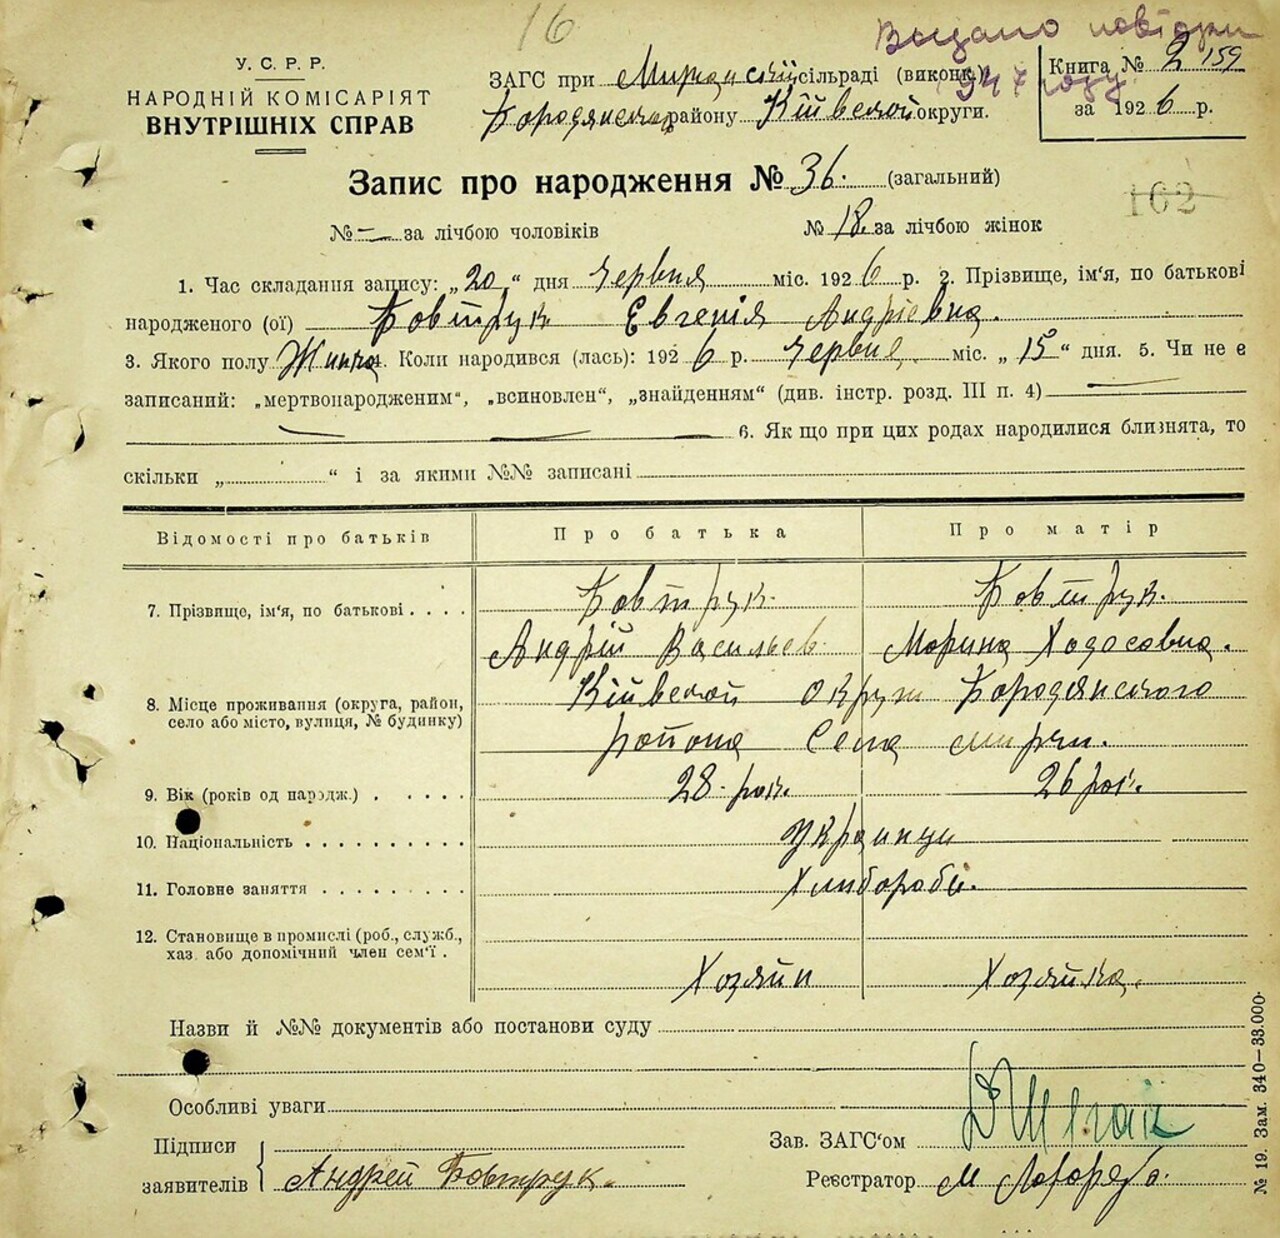 16
Видано повторн
У. С. Р. Р.
НАРОДНІЙ КОМІСАРІЯТ
ВНУТРІШНІХ СПРАВ
ЗАГС при сільраді (викон.)
Бородянськ району Київской округи.
Книга № 2 159
за 1926 р.
947 году
Запис про народження № 36. (загальний)
162
№ — за лічбою чоловіків № 18. за лічбою жінок
1. Час складання запису: „20“ дня Червня міс. 1926 р. 2. Прізвище, ім'я, по батькові
народженого (ої) Бовтрук Евгенія Андріевна.
3. Якого полу Жинка 4. Коли народився (лась): 1926 р. Червня міс. „15“ дня. 5. Чи не є
записаний: „мертвонародженим“, „всиновлен“, „знайденням“ (див. інстр. розд. III п. 4) —
— — — 6. Як що при цих родах народилися близнята, то
скільки „ “ і за якими №№ записані
Відомості про батьків Про батька Про матір
7. Прізвище, ім'я, по батькові . . . . Бовтрук. Бовтрук.
Андрій Васильев. Марина Ходосовна.
8. Місце проживання (округа, район, село або місто, вулиця, № будинку) Київской округи Бородянского
района Села Мирчи.
9. Вік (років од народж.) . . . . . 28. рок. 26 рок.
10. Національність . . . . . . . . . . Украинци
11. Головне заняття . . . . . . . . . Хлибороби.
12. Становище в промислі (роб., служб.,
хаз. або допомічний член сем'ї . Хозяйн Хозяйка.
Назви й №№ документів або постанови суду
Особливі уваги
Підписи
заявителів Андрей Бовтрук.
Зав. ЗАГС'ом
Реєстратор М
№ 19. Зам. 340—38.000.